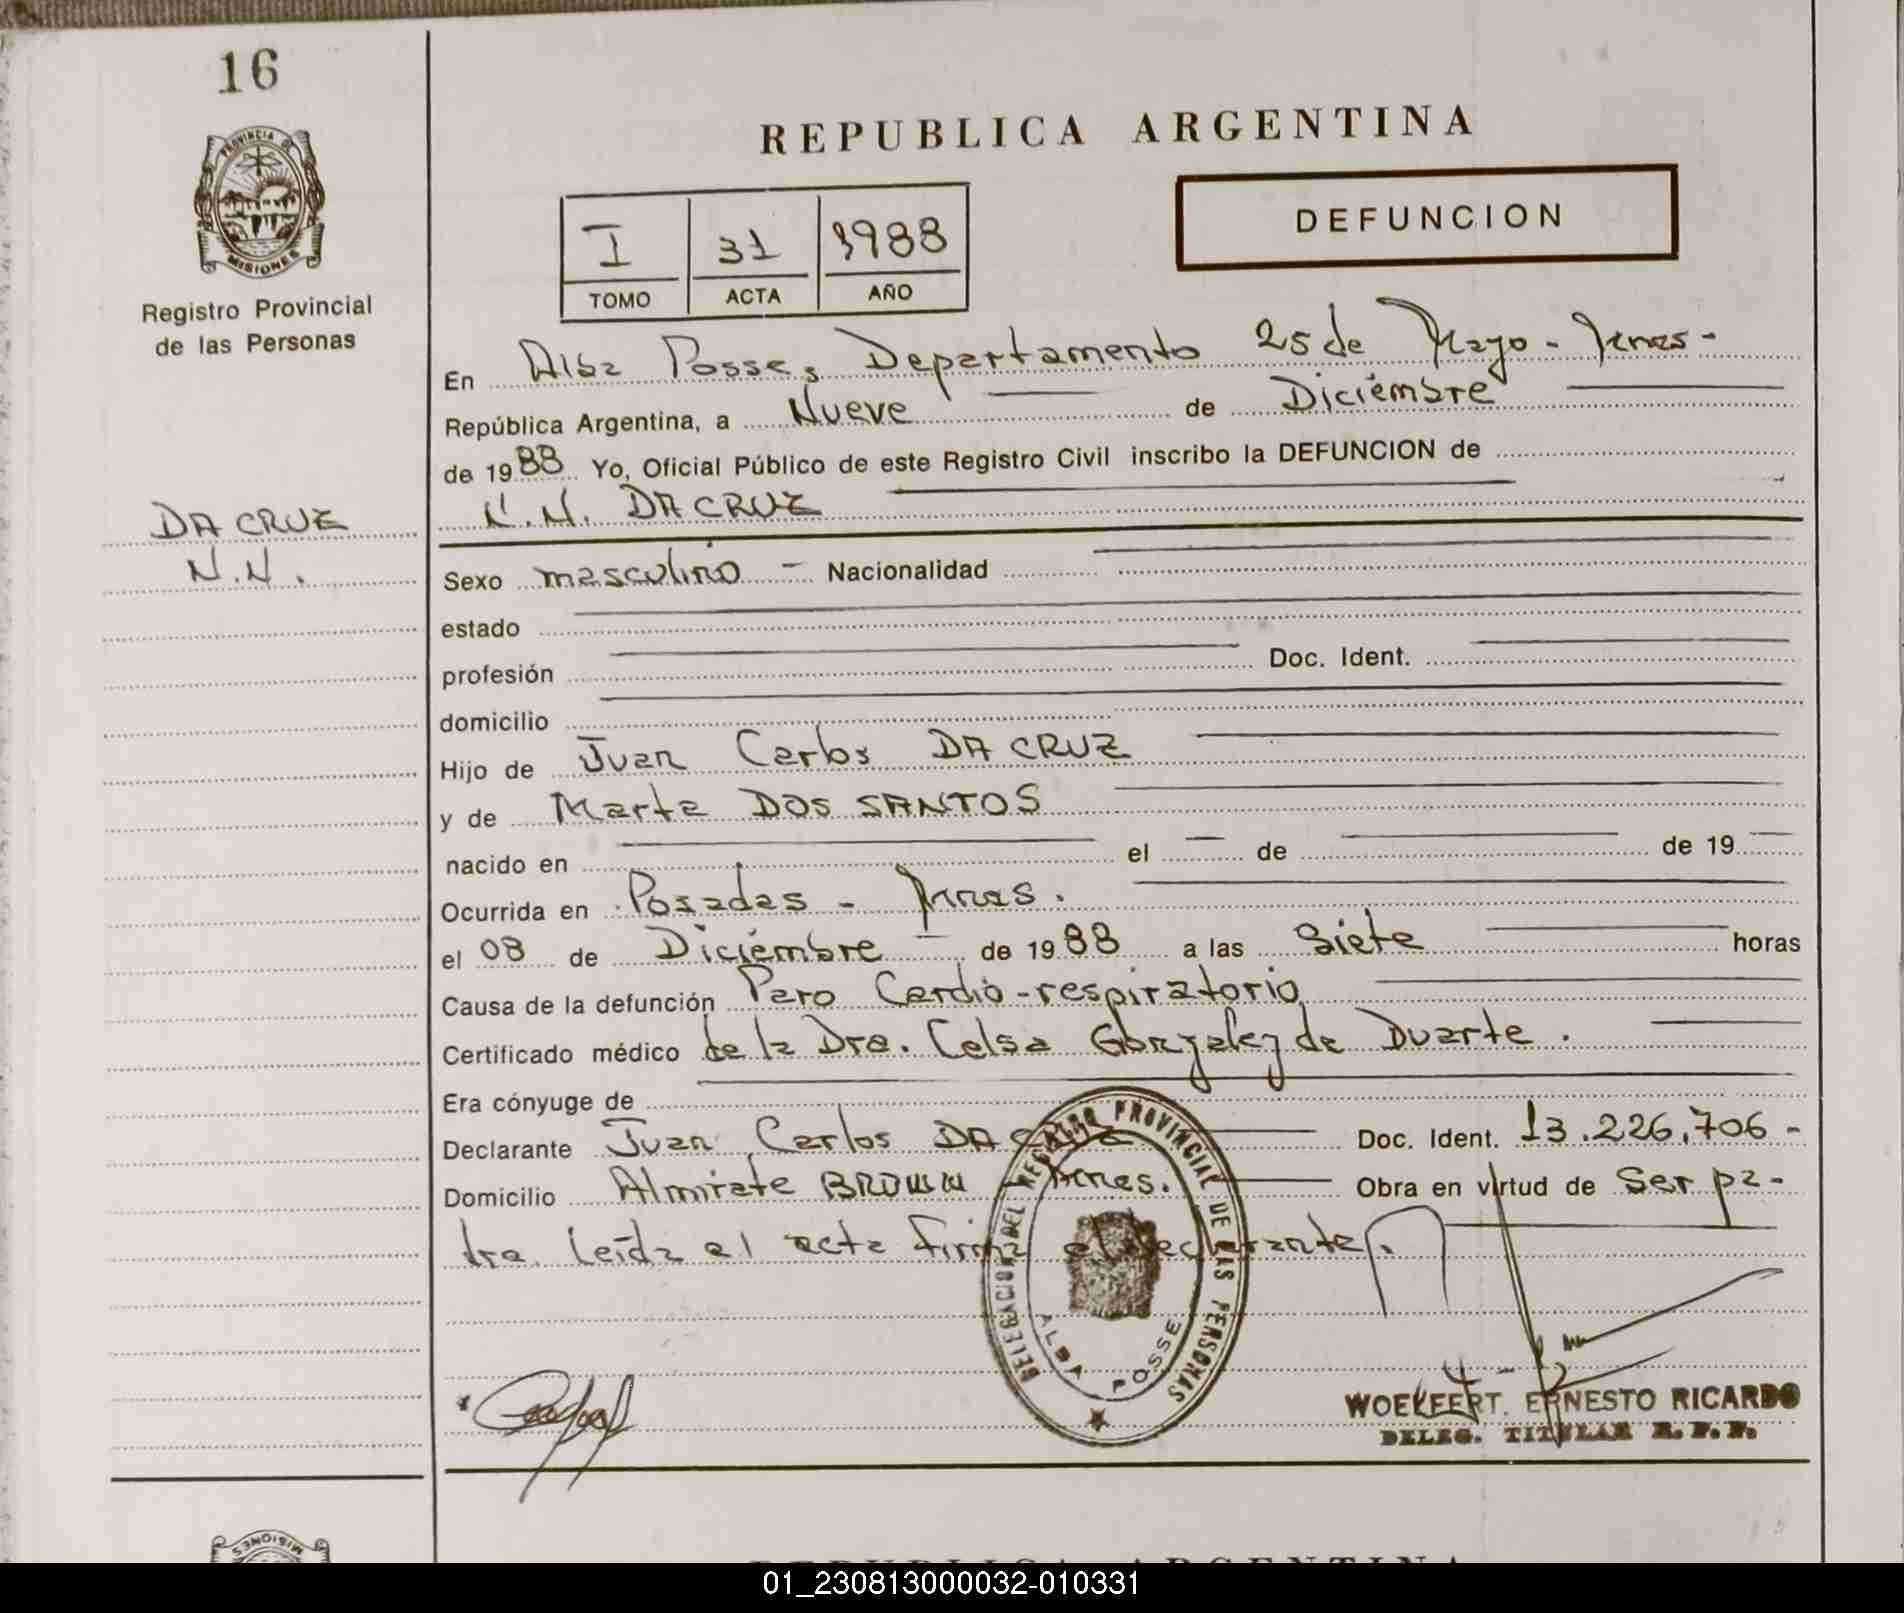 16
PROVINCIA DE
MISIONES
Registro Provincial
de las Personas
DA CRUZ
N.N.
REPUBLICA ARGENTINA
I 31 1988
TOMO ACTA AÑO
DEFUNCION
En Alba Posse, Departamento 25 de Mayo - Mnes -
República Argentina, a Nueve de Diciembre
de 1988 Yo, Oficial Público de este Registro Civil inscribo la DEFUNCION de
N.N. DA CRUZ
Sexo masculino - Nacionalidad
estado
profesión Doc. Ident.
domicilio
Hijo de Juan Carlos DA CRUZ
y de Marta DOS SANTOS
nacido en el de de 19
Ocurrida en Posadas - Mnes.
el 08 de Diciembre de 1988 a las Siete horas
Causa de la defunción Paro Cardio-respiratorio
Certificado médico de la Dra. Celsa Gonzalez de Duarte.
Era cónyuge de
Declarante Juan Carlos DA CRUZ Doc. Ident. 13.226.706 -
Domicilio Almirate BROWN - Mnes. Obra en virtud de Ser pa-
dre. leida el acta firma el declarante.
DELEGACION DEL REGISTRO PROVINCIAL DE LAS PERSONAS
ALBA POSSE
WOEKFERT. ERNESTO RICARDO
DELEG. TITULAR R. P. P.
MISIONES
REPUBLICA ARGENTINA
01_230813000032-010331